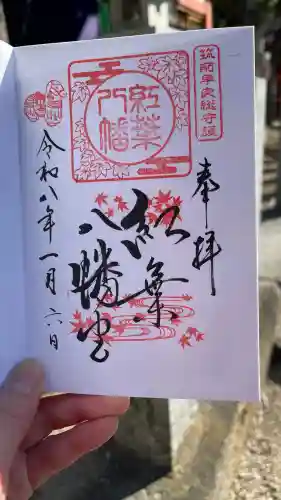 筑前早良総守護
奉拝
紅葉
八幡宮
紅葉
八幡
令和八年一月六日